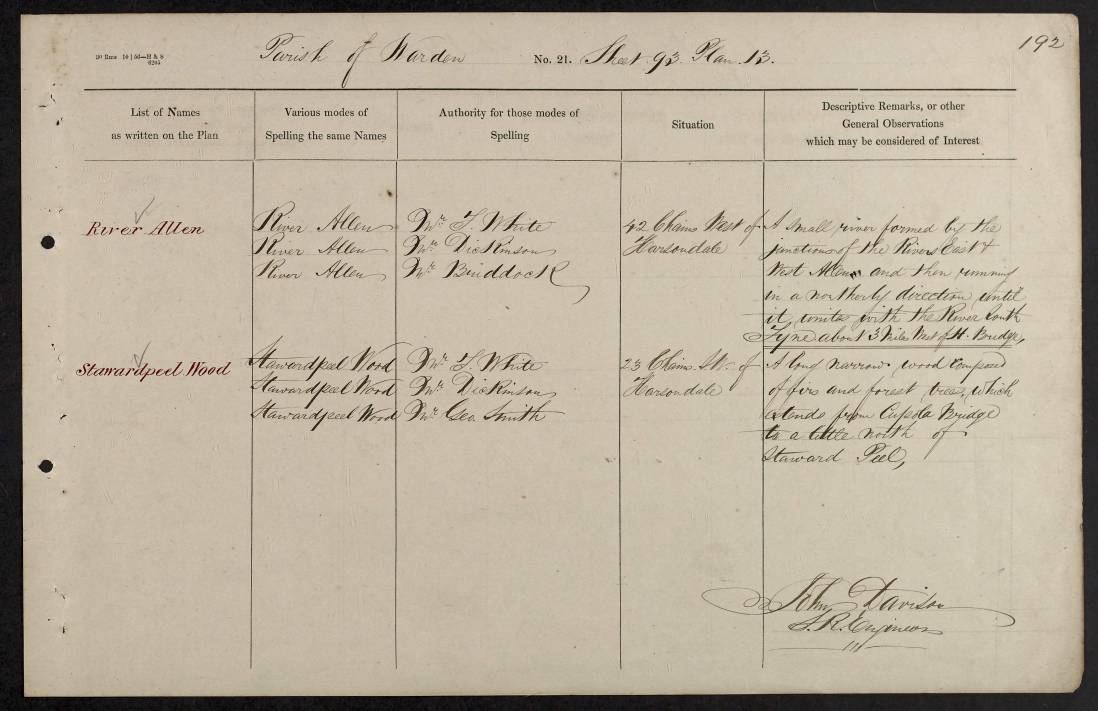 192
30 Rms 10 | 56—H & S
6205
Parish of Warden No. 21. Sheet 93. Plan. 13.
List of Names
as written on the Plan
Various modes of
Spelling the same Names
Authority for those modes of
Spelling
Situation
Descriptive Remarks, or other
General Observations
which may be considered of Interest
River Allen
River Allen
River Allen
River Allen
Mr. T. White
Mr. Dickinson
Mr. Bruddock
42 Chains West of
Harsondale
A small river formed by the
junction of the Rivers East &
West Allen, and then running
in a northerly direction until
it unites with the River South
Tyne about 3 Miles West of H. Bridge,
Stawardpeel Wood
Stawardpeel Wood
Stawardpeel Wood
Stawardpeel Wood
Mr. T. White
Mr. Dickinson
Mr. Geo. Smith
23 Chains of
Harsondale
A long narrow wood composed
of firs and forest trees, which
extends from Cupola Bridge
to a little north of
Staward Peel,
John Davison
S. R. Engineers